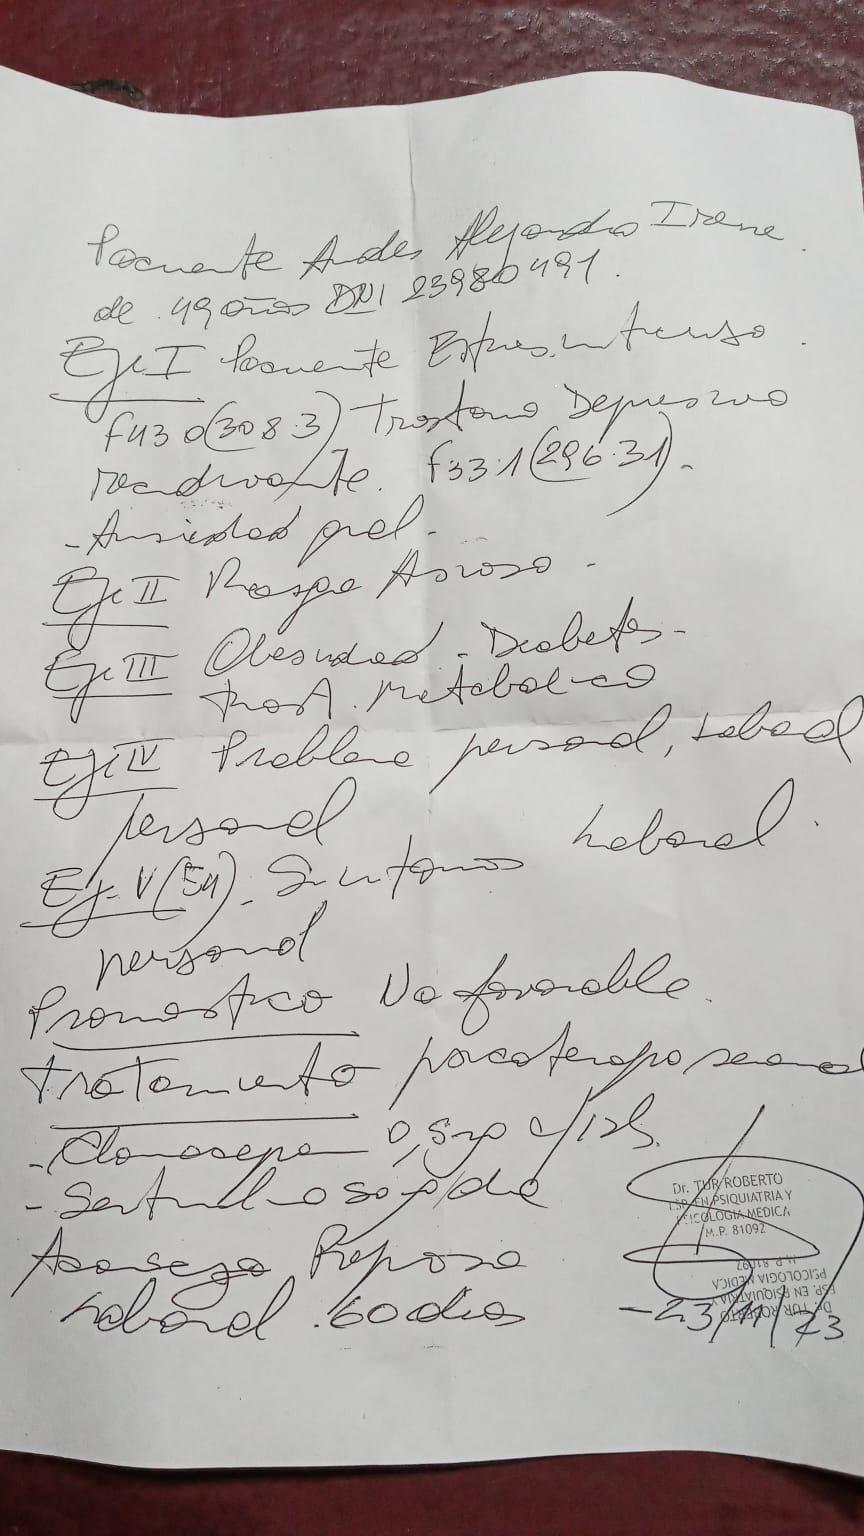 Paciente Andes Alejandra Irene.
de 49 años DNI 23980491.
Eje I Paciente Estres intenso.
f43 0 (308.3) Trastorno Depresivo
recidivante. f33.1 (296.31).
- Ansiedad gral.
Eje II Rasgo Ansioso -
Eje III Obesidad - Diabetes -
trast. Metabolico
Eje IV Problema personal, Laboral
personal
Eje V (54) - Sintomas Laboral.
personal
Pronostico No favorable.
tratamiento psicoterapia semanal
- Clonazepan 0,5 c/12h.
- Sertralina 50 /dia
Aconsejo Reposo
Laboral. 60 dias
Dr. TUR ROBERTO
ESP. EN PSIQUIATRIA Y
PSICOLOGIA MEDICA
M.P. 81092
M.P. 81092
PSICOLOGIA MEDICA
ESP. EN PSIQUIATRIA Y
Dr. TUR ROBERTO
- 23/11/23